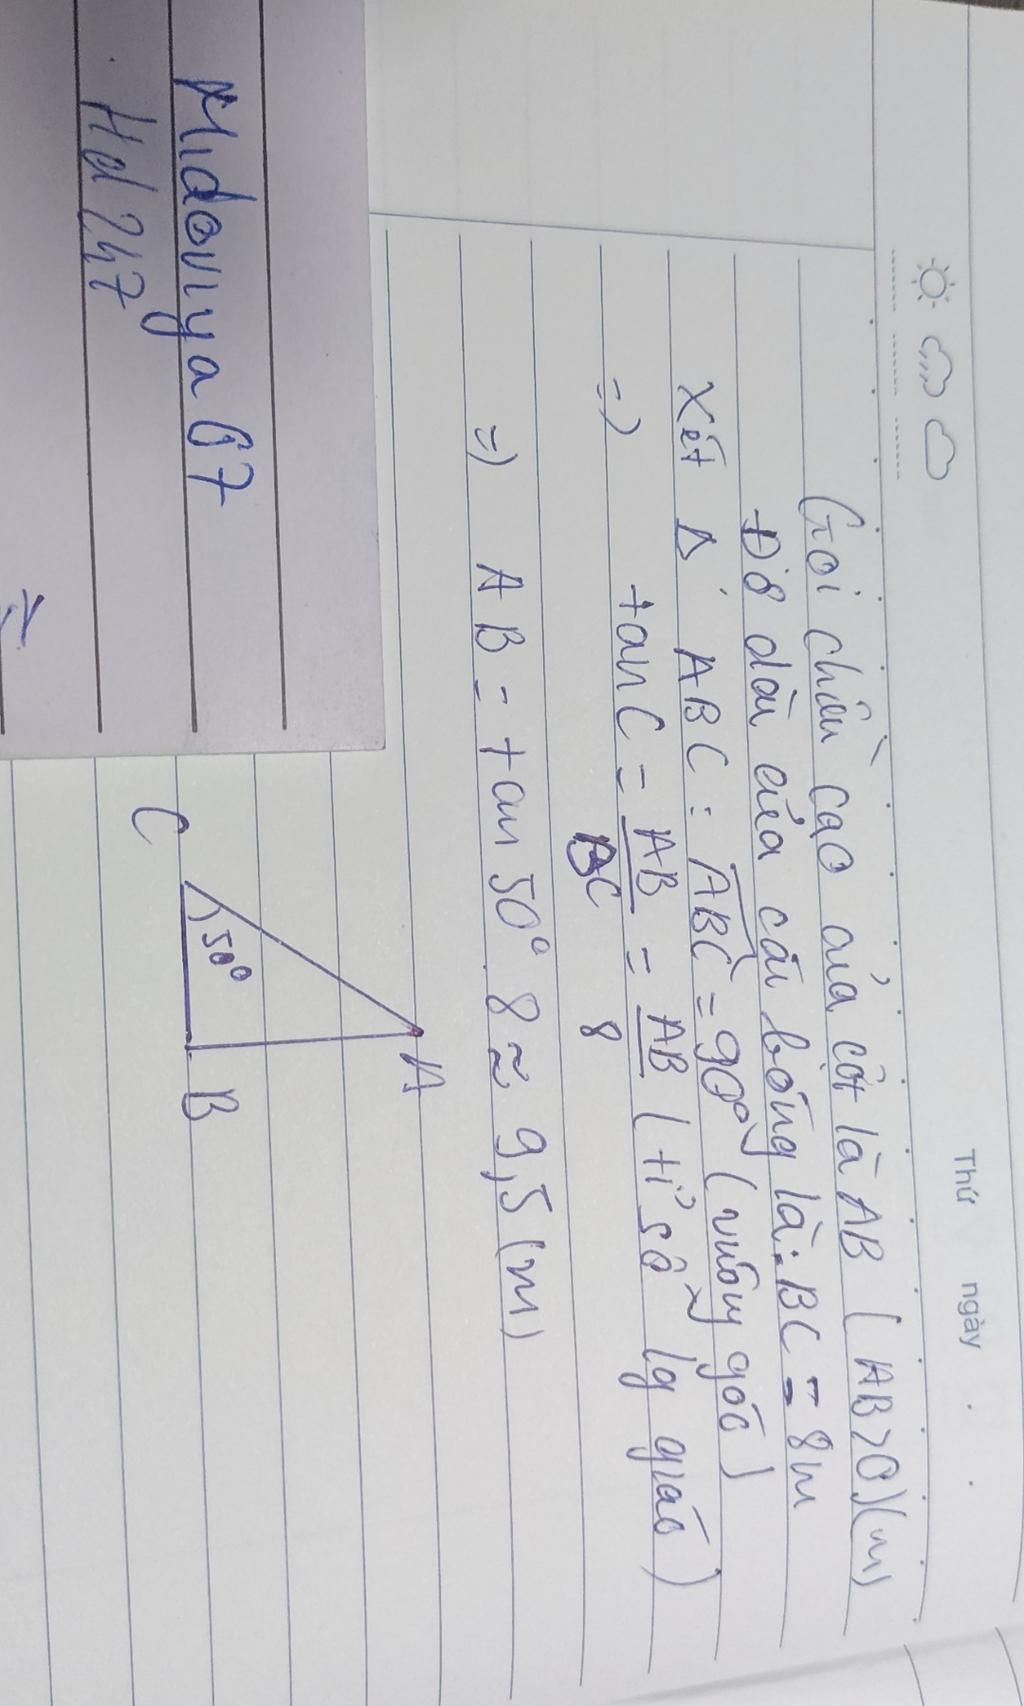 Thứ ngày . .
Gọi chiều cao của cột là AB (AB>0)(m)
Độ dài của cái bóng là: BC = 8m
Xét Δ ABC: ABC = 90° (vuông góc)
=) tan C = AB/BC = AB/8 (tỉ số lg giác)
=) AB = tan 50° . 8 ≈ 9,5 (m)
A
50°
C B
Midoviya 67
Hd 247